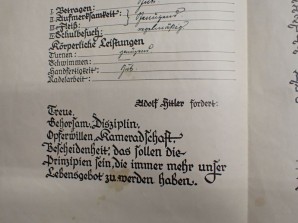 I. Betragen: Gut
II. Aufmerksamkeit: Genügend
II. Fleiß: Genügend
III. Schulbesuch: regelmäßig
Körperliche Leistungen
Turnen: genügend
Schwimmen:
Handfertigkeit: Gut
Nadelarbeit:
Adolf Hitler fordert:
Treue,
Gehorsam, Disziplin,
Opferwillen, Kameradschaft,
Bescheidenheit, das sollen die
Prinzipien sein, die immer mehr unser
Lebensgebot zu werden haben.